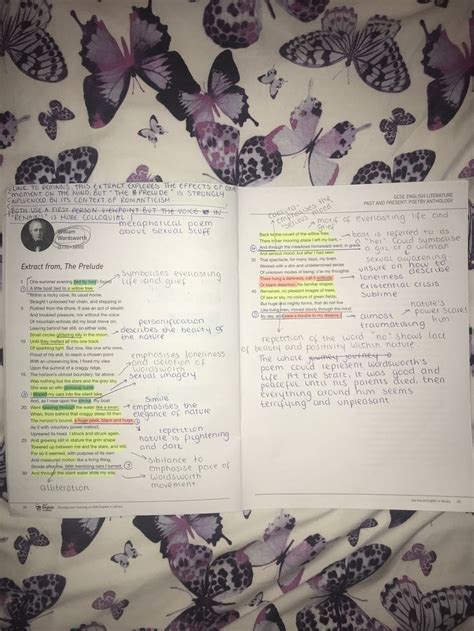 LINK TO REMAINS, THIS EXTRACT EXPLORES THE EFFECTS OF ONE
MOMENT ON THE MIND, BUT "THE PRELUDE" IS STRONGLY
INFLUENCED BY ITS CONTEXT OF ROMANTICISM.
BOTH USE A FIRST PERSON VIEWPOINT BUT THE VOICE IN
"REMAINS" IS MORE COLLOQUIAL
William
Wordsworth
metaphorical poem
about sexual stuff
Extract from, The Prelude
symbolises everlasting
life and grief
One summer evening (led by her) I found
A little boat tied to a willow tree
Within a rocky cove, its usual home.
Straight I unloosed her chain, and stepping in
Pushed from the shore. It was an act of stealth
And troubled pleasure, nor without the voice
Of mountain-echoes did my boat move on;
Leaving behind her still, on either side,
Small circles glittering idly in the moon,
Until they melted all into one track
Of sparkling light. But now, like one who rows,
Proud of his skill, to reach a chosen point
With an unswerving line, I fixed my view
Upon the summit of a craggy ridge,
The horizon's utmost boundary; far above
Was nothing but the stars and the grey sky.
She was an elfin pinnace; lustily
I dipped my oars into the silent lake,
And, as I rose upon the stroke, my boat
Went heaving through the water like a swan;
When, from behind that craggy steep till then
The horizon's bound, a huge peak, black and huge,
As if with voluntary power instinct,
Upreared its head. I struck and struck again,
And growing still in stature the grim shape
Towered up between me and the stars, and still,
For so it seemed, with purpose of its own
And measured motion like a living thing,
Strode after me. With trembling oars I turned,
And through the silent water stole my way
personification
describes the beauty of
the nature
emphasises loneliness
and isolation of
wordsworth
sexual imagery
simile
emphasises the
elegance of nature
repetition
nature is frightening
and dark
sibilance to
emphasise pace of
wordsworth
movement
alliteration
GCSE ENGLISH LITERATURE
PAST AND PRESENT: POETRY ANTHOLOGY
motif of everlasting life and
grief
Back to the covert of the willow tree;
There in her mooring-place I left my bark, –
And through the meadows homeward went, in grave
And serious mood; but after I had seen
That spectacle, for many days, my brain
Worked with a dim and undetermined sense
Of unknown modes of being; o'er my thoughts
There hung a darkness, call it solitude
Or blank desertion. No familiar shapes
Remained, no pleasant images of trees,
Of sea or sky, no colours of green fields;
But huge and mighty forms, that do not live
Like living men, moved slowly through the mind
By day, and were a trouble to my dreams.
boat is referred to as
a "her" could symbolise
a girl or a woman
sexual awakening
unsure on how to
describe
loneliness and
existential crisis
sublime
nature's
power scares
him
almost
traumatising him
repetition of the word "no" shows lack
of beauty and positivity within nature
The whole
poem could represent wordsworth's
life. At the start, it was good and
peaceful until his parents died, then
everything around him seems
terrifying and unpleasant